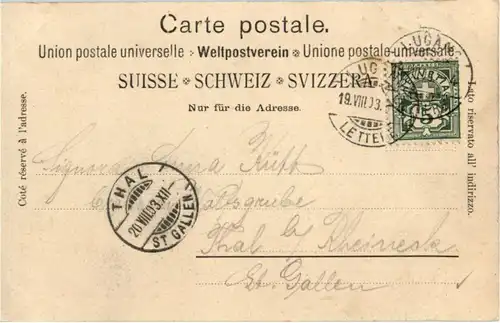 Carte postale.
Union postale universelle • Weltpostverein • Unione postale universale
SUISSE • SCHWEIZ • SVIZZERA
Nur für die Adresse.
Coté réservé à l'adresse.
Lato riservato all' indirizzo.
19.VIII.03.
LETTERE
5
THAL
20.VIII.03.XII-
ST GALLEN
Signora Anna
Thal b/ Rheineck
St. Gallen